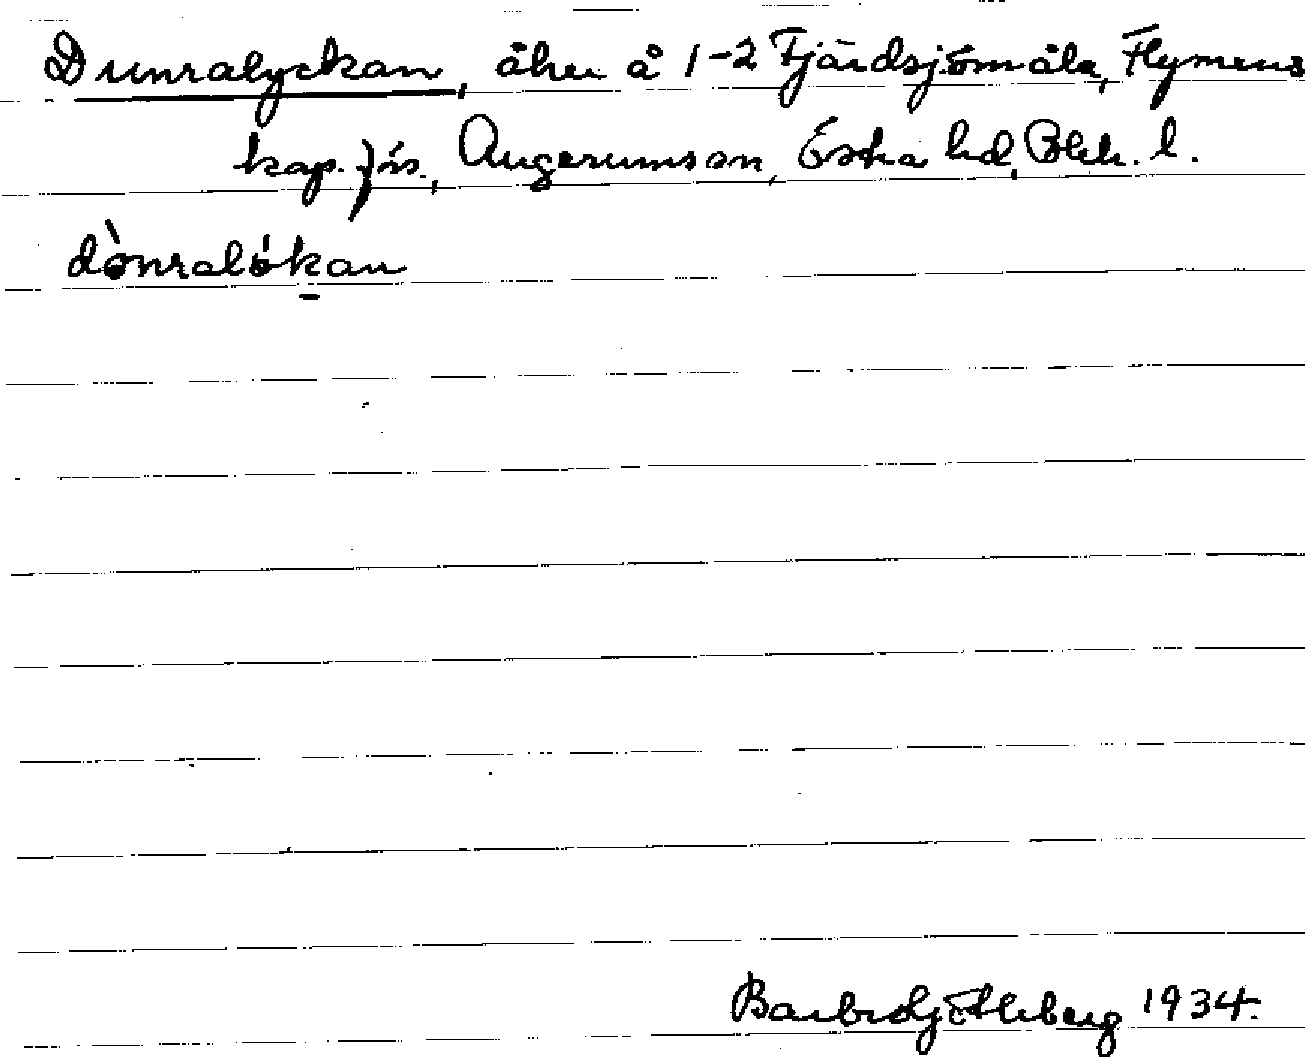 Dunralyckan, åker å 1-2 Fjärdsjömåla, Flymens
kap.förs., Augerums sn, Östra hd, Blek. l.
dònralókan
Barbro Ahlberg 1934.